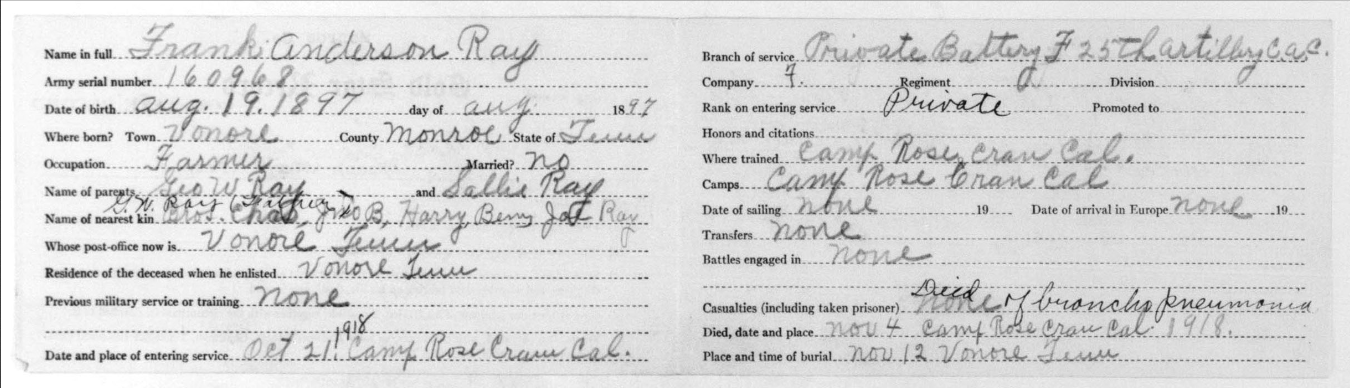 Name in full Frank Anderson Ray
Army serial number 160968
Date of birth aug. 19. 1897 day of aug 1897
Where born? Town Vonore County Monroe State of Tenn
Occupation Farmer Married? no
Name of parents Geo W Ray and Sallie Ray
G. W. Ray (Father)
Name of nearest kin Bros. Chas, Jno B, Harry, Benj, Ray
Whose post-office now is Vonore Tenn
Residence of the deceased when he enlisted Vonore Tenn
Previous military service or training none
1918
Date and place of entering service Oct 21. Camp Rose Cran Cal.
Branch of service Private Battery F 25th artillery C.a.C.
Company F. Regiment Division
Rank on entering service Private Promoted to
Honors and citations
Where trained Camp Rose Cran Cal.
Camps Camp Rose Cran Cal
Date of sailing none 19 Date of arrival in Europe none 19
Transfers none
Battles engaged in none
Casualties (including taken prisoner) none Died of broncho pneumonia
Died, date and place nov 4 Camp Rose Cran Cal 1918.
Place and time of burial nov 12 Vonore Tenn